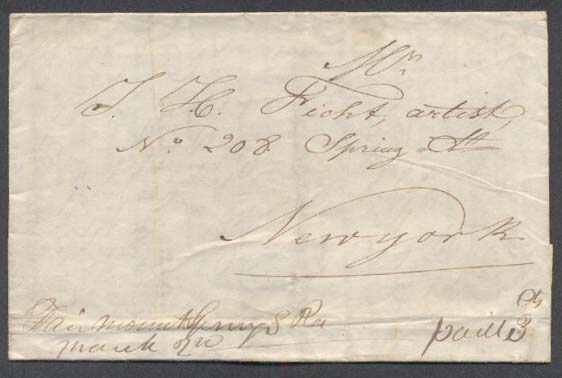 Mr
J. H. Ficht, artist,
No 208. Spring St
New york
Fairmount Pa
march
cts
paid 3